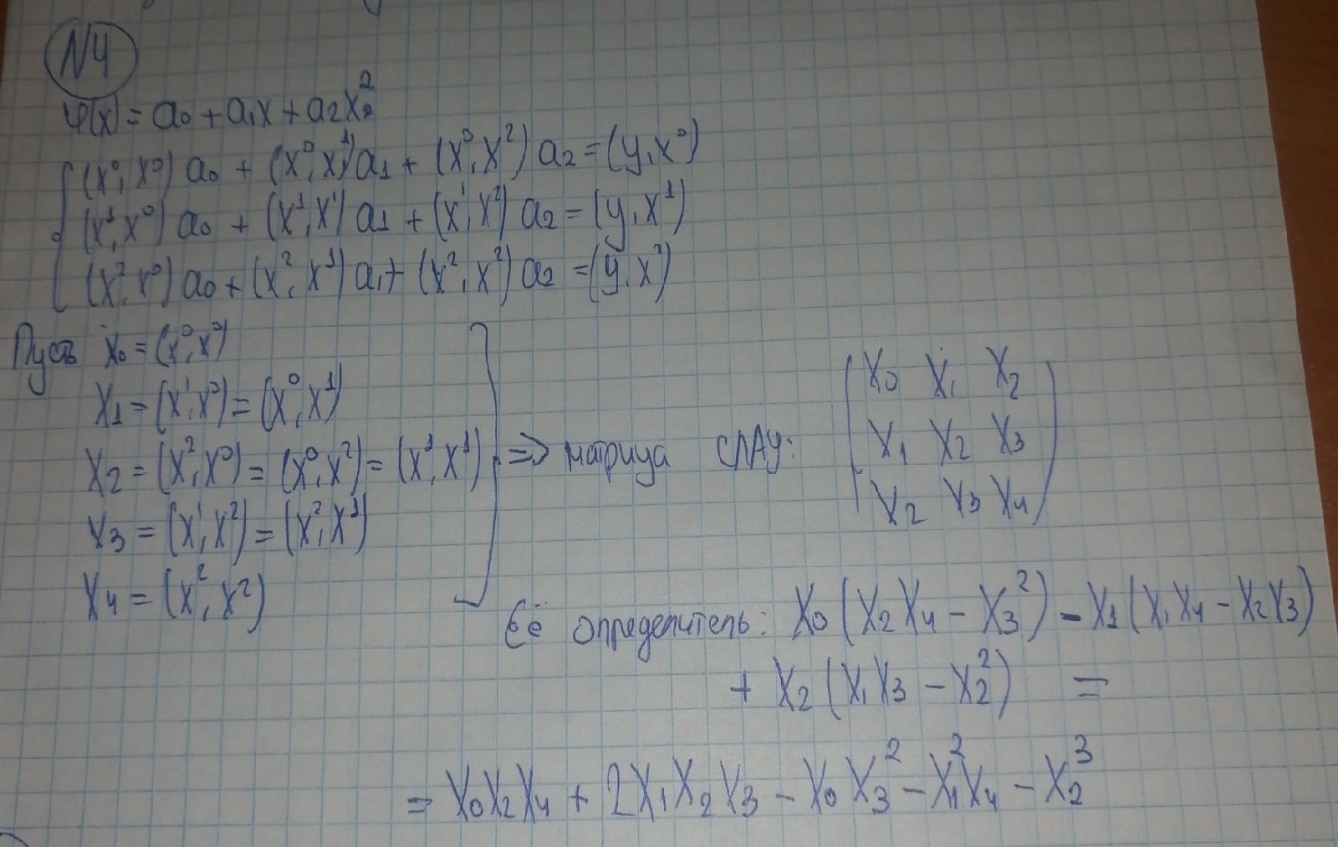 N4
φ(x) = a₀ + a₁x + a₂x²
(x⁰, x⁰) a₀ + (x⁰, x¹) a₁ + (x⁰, x²) a₂ = (y, x⁰)
(x¹, x⁰) a₀ + (x¹, x¹) a₁ + (x¹, x²) a₂ = (y, x¹)
(x², x⁰) a₀ + (x², x¹) a₁ + (x², x²) a₂ = (y, x²)
Пусть X₀ = (x⁰, x⁰)
X₁ = (x¹, x⁰) = (x⁰, x¹)
X₂ = (x², x⁰) = (x⁰, x²) = (x¹, x¹)
X₃ = (x¹, x²) = (x², x¹)
X₄ = (x², x²)
=> матрица СЛАУ:
X₀ X₁ X₂
X₁ X₂ X₃
X₂ X₃ X₄
Её определитель: X₀ (X₂X₄ − X₃²) − X₁ (X₁X₄ − X₂X₃)
+ X₂ (X₁X₃ − X₂²) =
= X₀X₂X₄ + 2X₁X₂X₃ − X₀X₃² − X₁²X₄ − X₂³